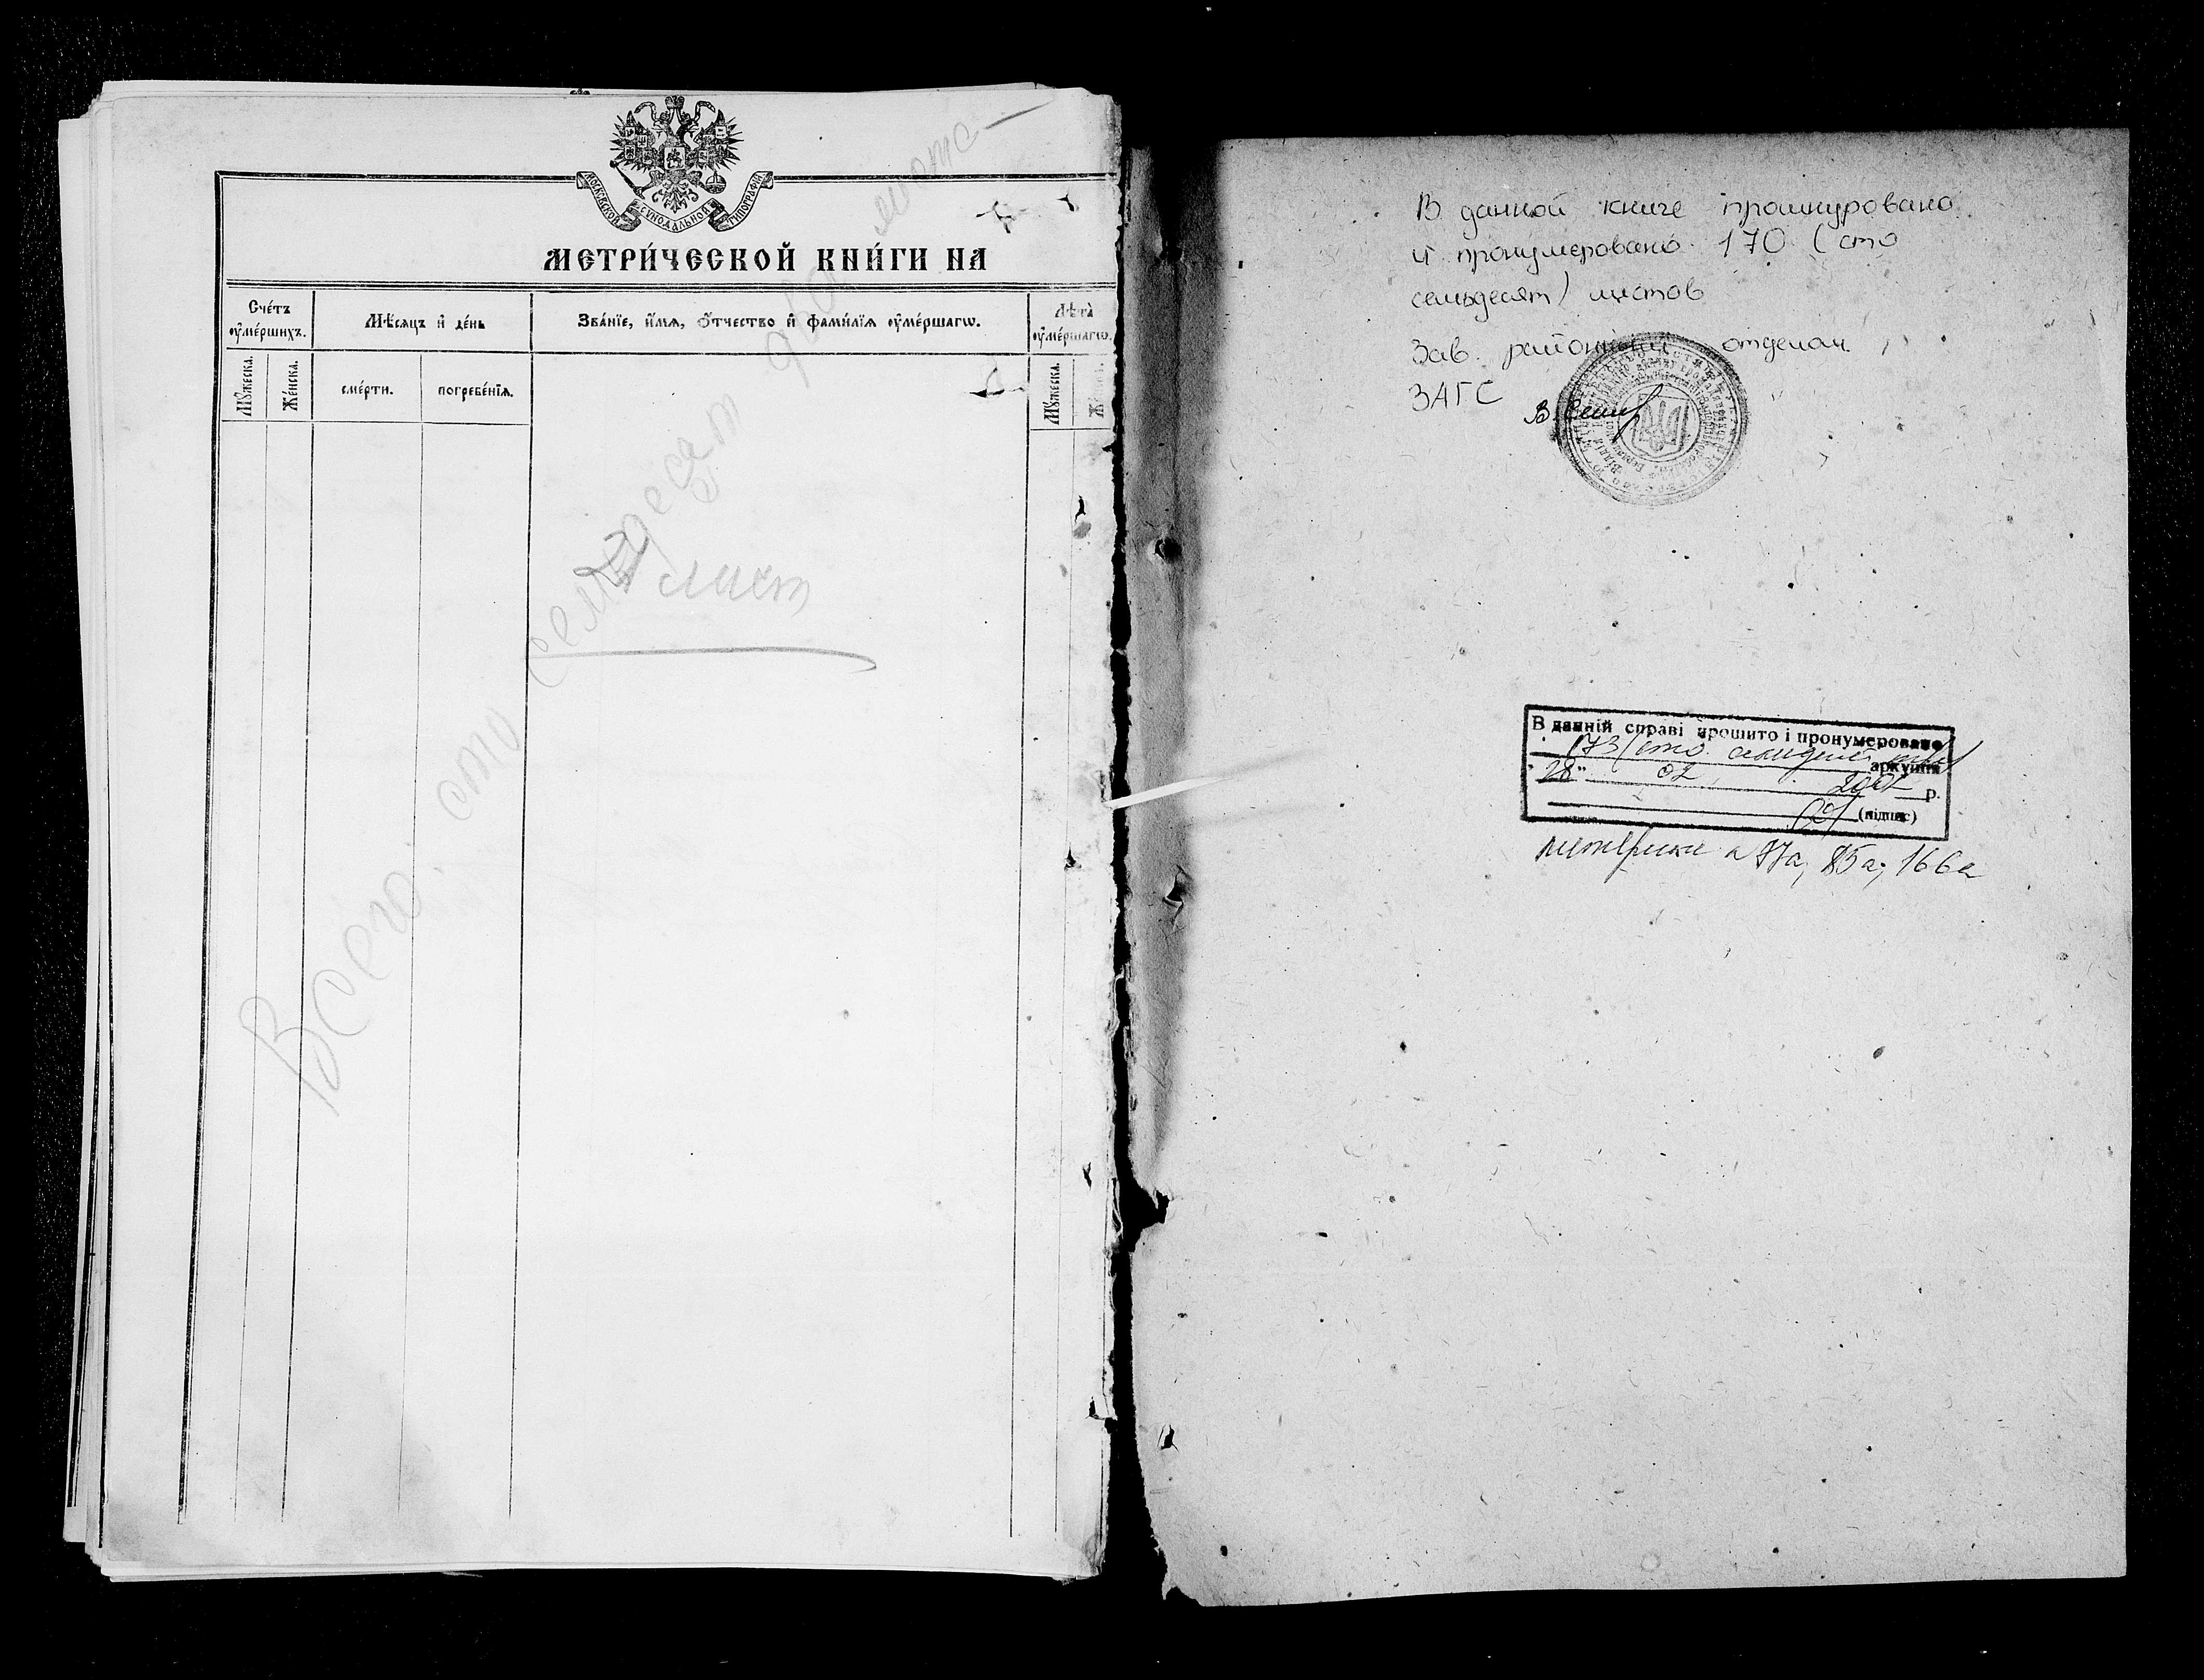 МОСКОВСКОЙ СѴНОДАЛЬНОЙ ТИПОГРАФІИ
МЕТРИ́ЧЕСКОЙ КНИ́ГИ НА
Сче́тъ ᲂу҆ме́ршихъ.
Мѣ́сяцъ и҆ де́нь
Зва́нїе, и҆́мѧ, ѻ҆́тчество и҆ фами́лїѧ ᲂу҆ме́ршагѡ.
Лѣ́та ᲂу҆ме́ршагѡ.
Мꙋ́жеска.
Же́нска.
сме́рти.
погребе́нїѧ.
Мꙋ́жеска.
Всего: сто семьдесят два листа
лист
В данной книге прошнуровано
и пронумеровано 170 (сто
семьдесят) листов
Зав. районным отделом
ЗАГС
В данній справі прошито і пронумеровано
173 (сто сімдесят
аркушів
"28" 02 2002 р.
(підпис)
литерные л 77а, 85а, 166а